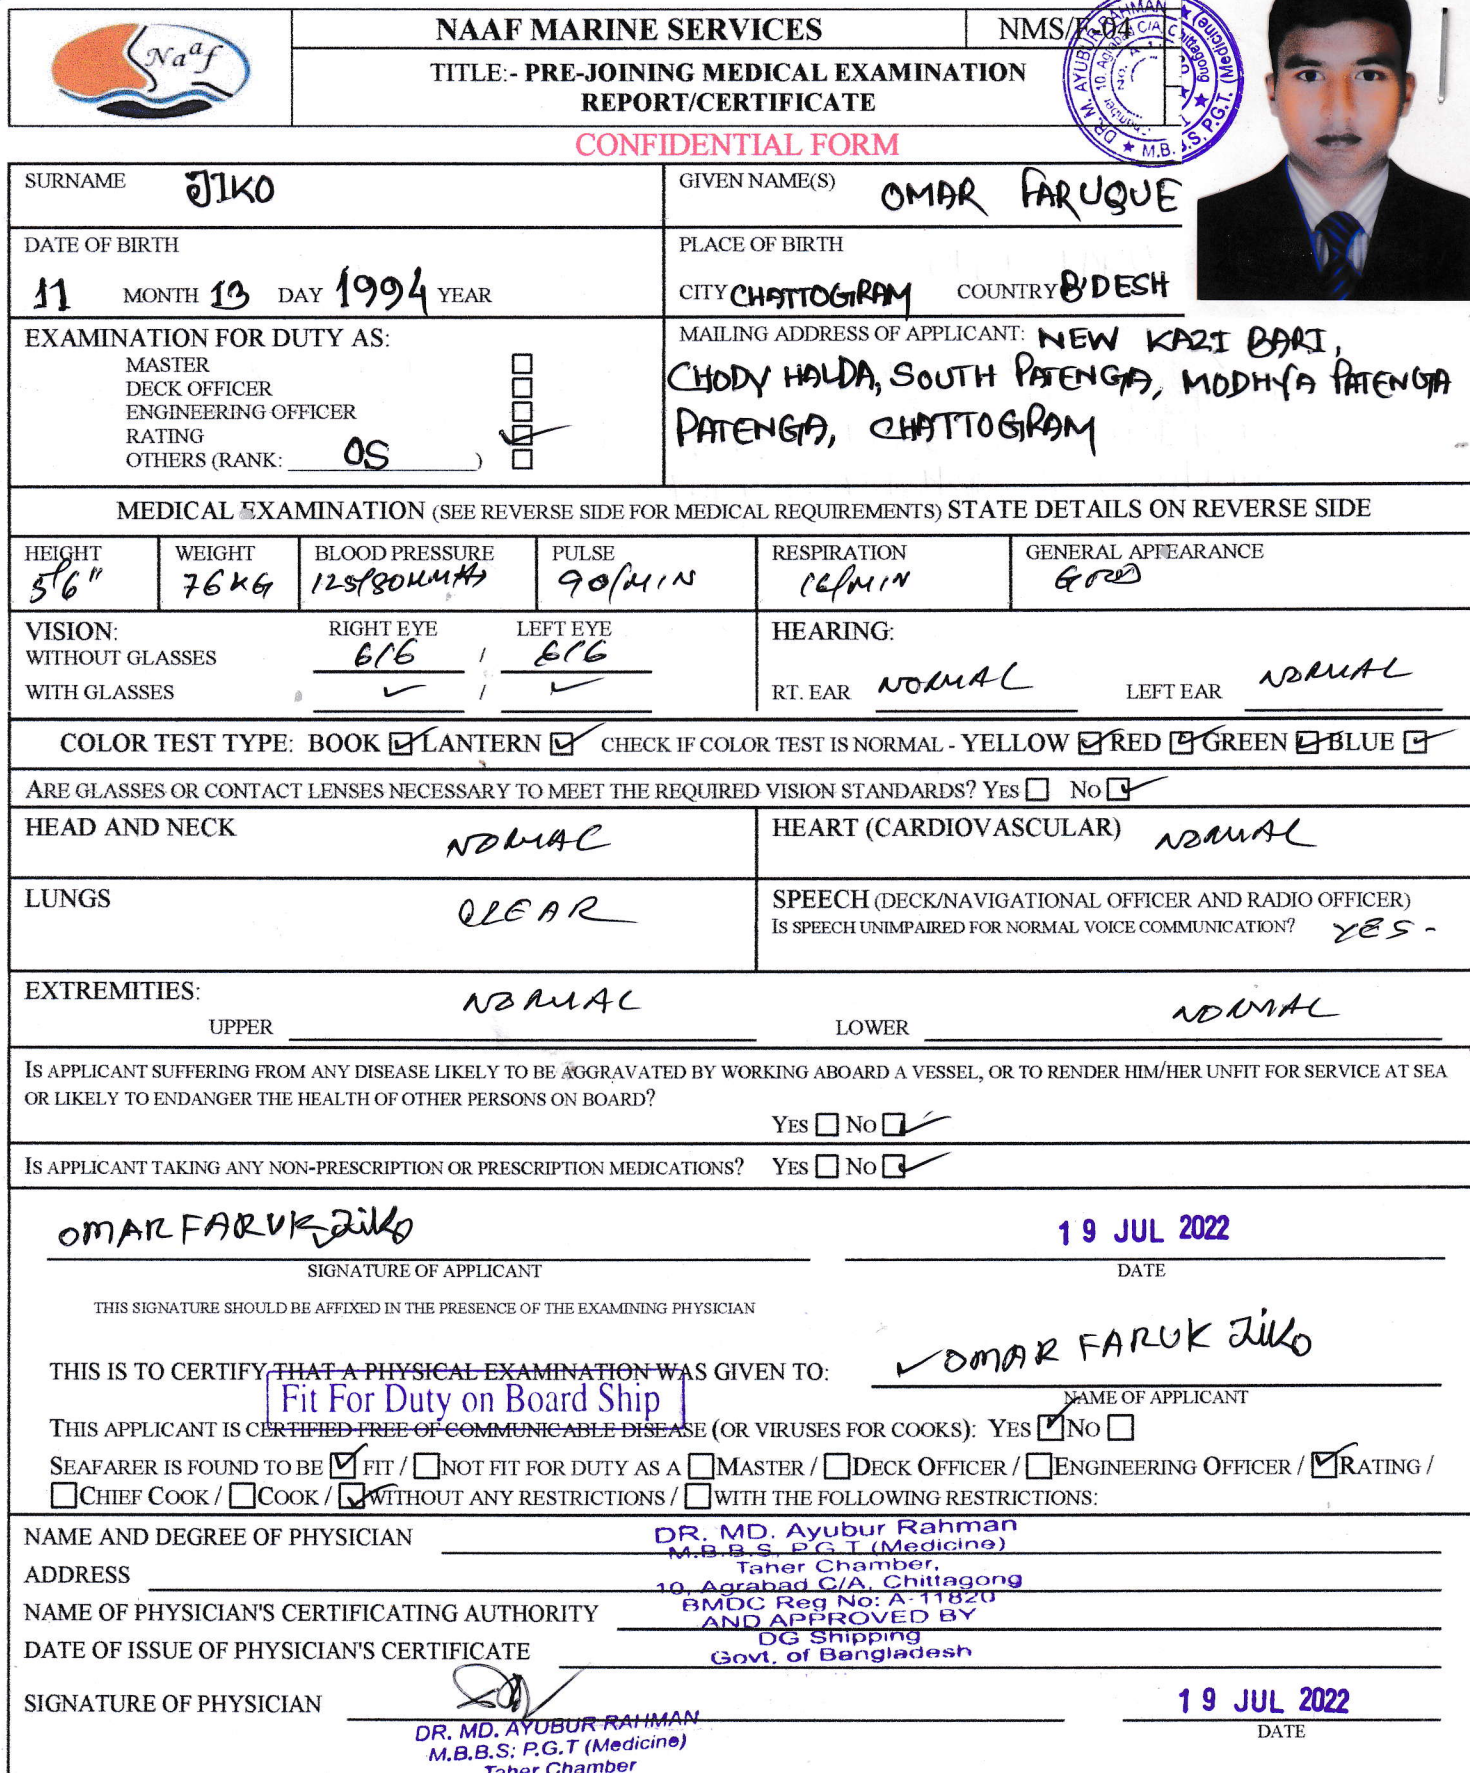 Naaf
NAAF MARINE SERVICES
NMS/F-04
TITLE:- PRE-JOINING MEDICAL EXAMINATION
REPORT/CERTIFICATE
DR. M. AYUBUR RAHMAN
M.B.B.S. P.G.T. (Medicine)
CONFIDENTIAL FORM
SURNAME JIKO
GIVEN NAME(S) OMAR FARUQUE
DATE OF BIRTH
11 MONTH 13 DAY 1994 YEAR
PLACE OF BIRTH
CITY CHATTOGRAM COUNTRY B'DESH
EXAMINATION FOR DUTY AS:
MASTER
DECK OFFICER
ENGINEERING OFFICER
RATING
OTHERS (RANK: OS )
MAILING ADDRESS OF APPLICANT: NEW KAZI BARI,
CHODY HALDA, SOUTH PATENGA, MODHYA PATENGA
PATENGA, CHATTOGRAM
MEDICAL EXAMINATION (SEE REVERSE SIDE FOR MEDICAL REQUIREMENTS) STATE DETAILS ON REVERSE SIDE
HEIGHT WEIGHT BLOOD PRESSURE PULSE RESPIRATION GENERAL APPEARANCE
5'6" 76 KG 125/80MMHg 90/MIN 16/MIN GOOD
VISION: RIGHT EYE LEFT EYE
WITHOUT GLASSES 6/6 / 6/6
WITH GLASSES /
HEARING:
RT. EAR NORMAL LEFT EAR NORMAL
COLOR TEST TYPE: BOOK LANTERN CHECK IF COLOR TEST IS NORMAL - YELLOW RED GREEN BLUE
ARE GLASSES OR CONTACT LENSES NECESSARY TO MEET THE REQUIRED VISION STANDARDS? YES NO
HEAD AND NECK NORMAL
HEART (CARDIOVASCULAR) NORMAL
LUNGS CLEAR
SPEECH (DECK/NAVIGATIONAL OFFICER AND RADIO OFFICER)
IS SPEECH UNIMPAIRED FOR NORMAL VOICE COMMUNICATION? YES -
EXTREMITIES:
UPPER NORMAL LOWER NORMAL
IS APPLICANT SUFFERING FROM ANY DISEASE LIKELY TO BE AGGRAVATED BY WORKING ABOARD A VESSEL, OR TO RENDER HIM/HER UNFIT FOR SERVICE AT SEA
OR LIKELY TO ENDANGER THE HEALTH OF OTHER PERSONS ON BOARD?
YES NO
IS APPLICANT TAKING ANY NON-PRESCRIPTION OR PRESCRIPTION MEDICATIONS? YES NO
OMAR FARUK Jiko 19 JUL 2022
SIGNATURE OF APPLICANT DATE
THIS SIGNATURE SHOULD BE AFFIXED IN THE PRESENCE OF THE EXAMINING PHYSICIAN
THIS IS TO CERTIFY THAT A PHYSICAL EXAMINATION WAS GIVEN TO: OMAR FARUK Jiko
NAME OF APPLICANT
Fit For Duty on Board Ship
THIS APPLICANT IS CERTIFIED FREE OF COMMUNICABLE DISEASE (OR VIRUSES FOR COOKS): YES NO
SEAFARER IS FOUND TO BE FIT / NOT FIT FOR DUTY AS A MASTER / DECK OFFICER / ENGINEERING OFFICER / RATING /
CHIEF COOK / COOK / WITHOUT ANY RESTRICTIONS / WITH THE FOLLOWING RESTRICTIONS:
NAME AND DEGREE OF PHYSICIAN DR. MD. Ayubur Rahman
M.B.B.S, P.G.T (Medicine)
Taher Chamber,
ADDRESS 10, Agrabad C/A, Chittagong
BMDC Reg No: A-11820
NAME OF PHYSICIAN'S CERTIFICATING AUTHORITY AND APPROVED BY
DG Shipping
DATE OF ISSUE OF PHYSICIAN'S CERTIFICATE Govt. of Bangladesh
SIGNATURE OF PHYSICIAN 19 JUL 2022
DATE
DR. MD. AYUBUR RAHMAN
M.B.B.S; P.G.T (Medicine)
Taher Chamber